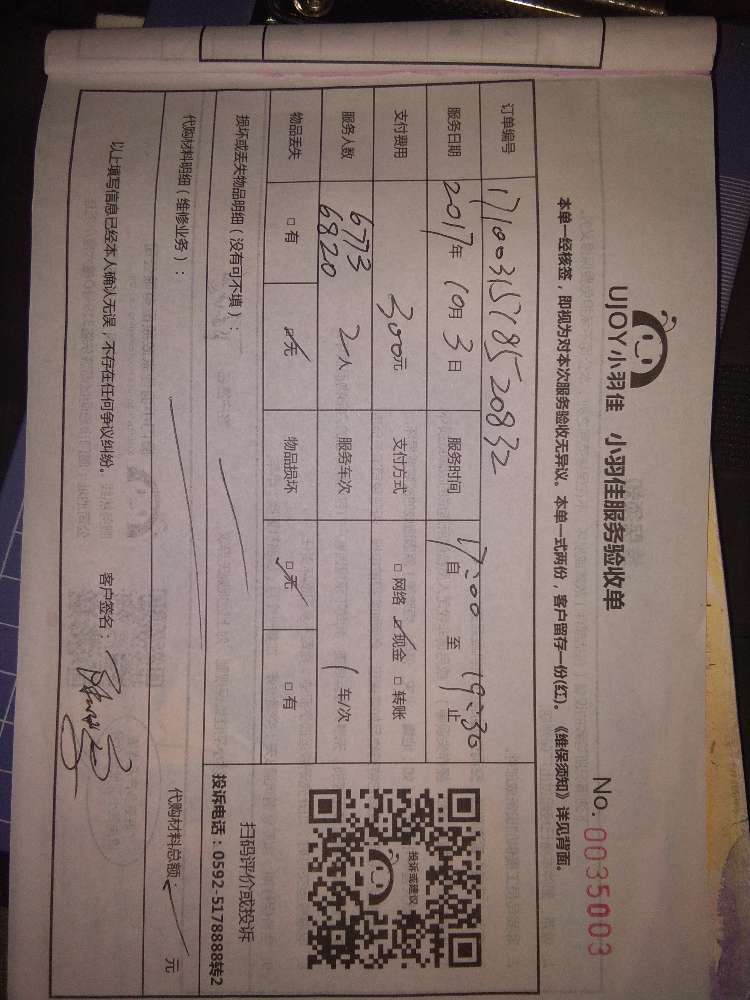 UJOY小羽佳 小羽佳服务验收单
No. 0035003
本单一经核签，即视为对本次服务验收无异议。本单一式两份，客户留存一份(红)。《维保须知》详见背面。
订单编号 17100315718520832
服务日期 2017年 10月 3日 服务时间 17:00 自 至 19:30 止
支付费用 300元 支付方式 □网络 ☑现金 □转账
服务人数 6773 6820 2人 服务车次 1 车/次
物品丢失 □有 ☑无 物品损坏 ☑无 □有
投诉或建议
扫码评价或投诉
投诉电话：0592-5178888转2
损坏或丢失物品明细（没有可不填）：
代购材料明细（维修业务）：
代购材料总额： 元
以上填写信息已经本人确认无误，不存在任何争议纠纷。 客户签名：